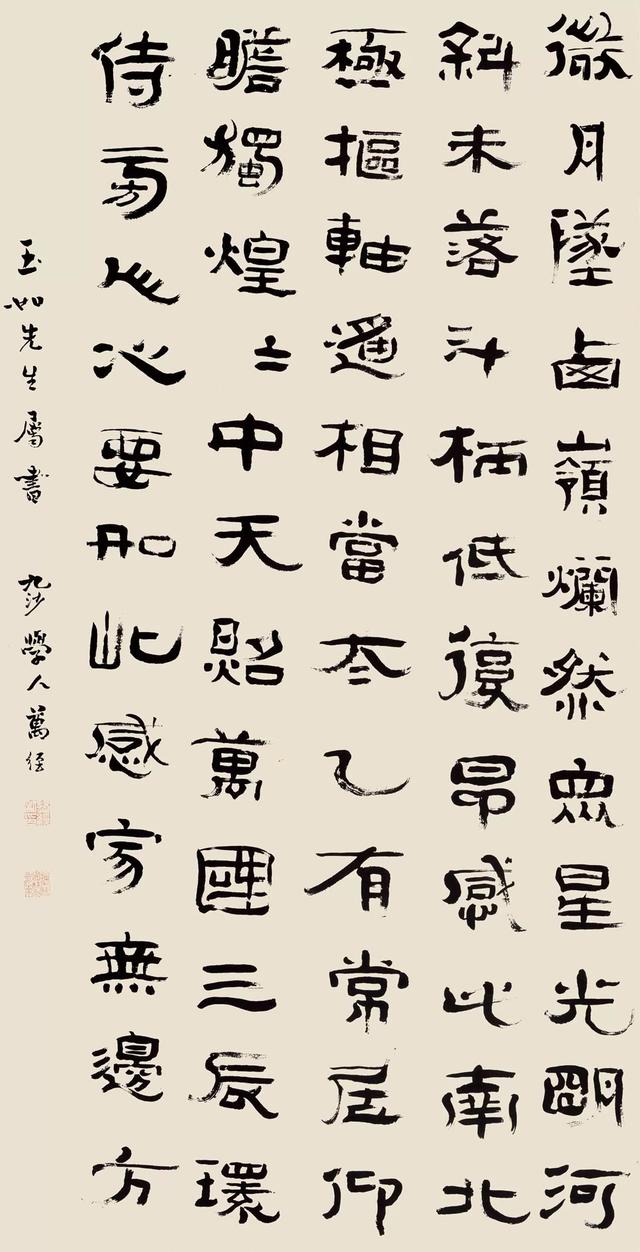 微月墜鹵嶺爛然眾星光明河
斜未落斗柄低復昂感此南北
極樞軸遙相當太乙有常居仰
瞻獨煌〻中天照萬國三辰環
侍旁人心要如此感寂無邊方
玉如先生屬書 九沙學人萬經